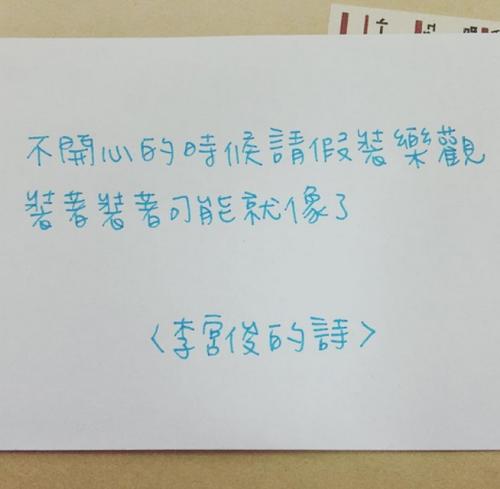 不開心的時候請假裝樂觀
裝著裝著可能就像了
〈李宮俊的詩〉